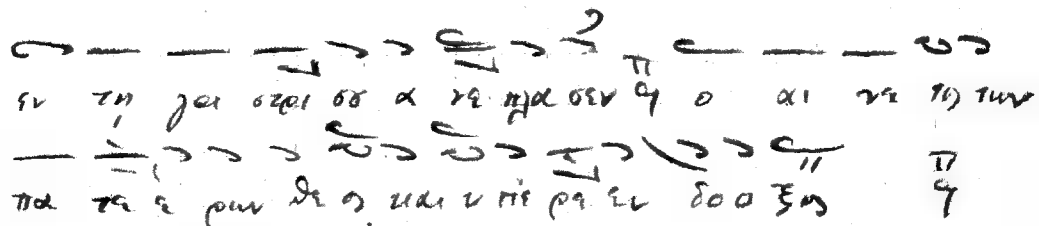 εν τη γα στρι σου α νε πλα σεν π ο αι νε τος των
πα τε ε ρων θε ος και υ πε ρε εν δο ο ξος π